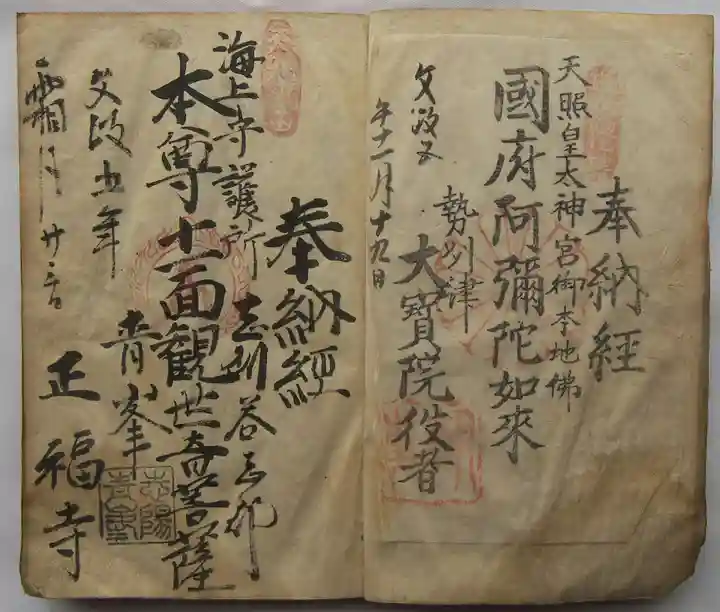 奉納經
天照皇太神宮御本地佛
國府阿彌陀如來
文政五
午十一月十九日
勢州津
大寶院役者
奉納經
海上守護所
志州答志郡
本尊十一面観世音菩薩
文政五年
霜月廿日
青峯
正福寺
志陽
青峯